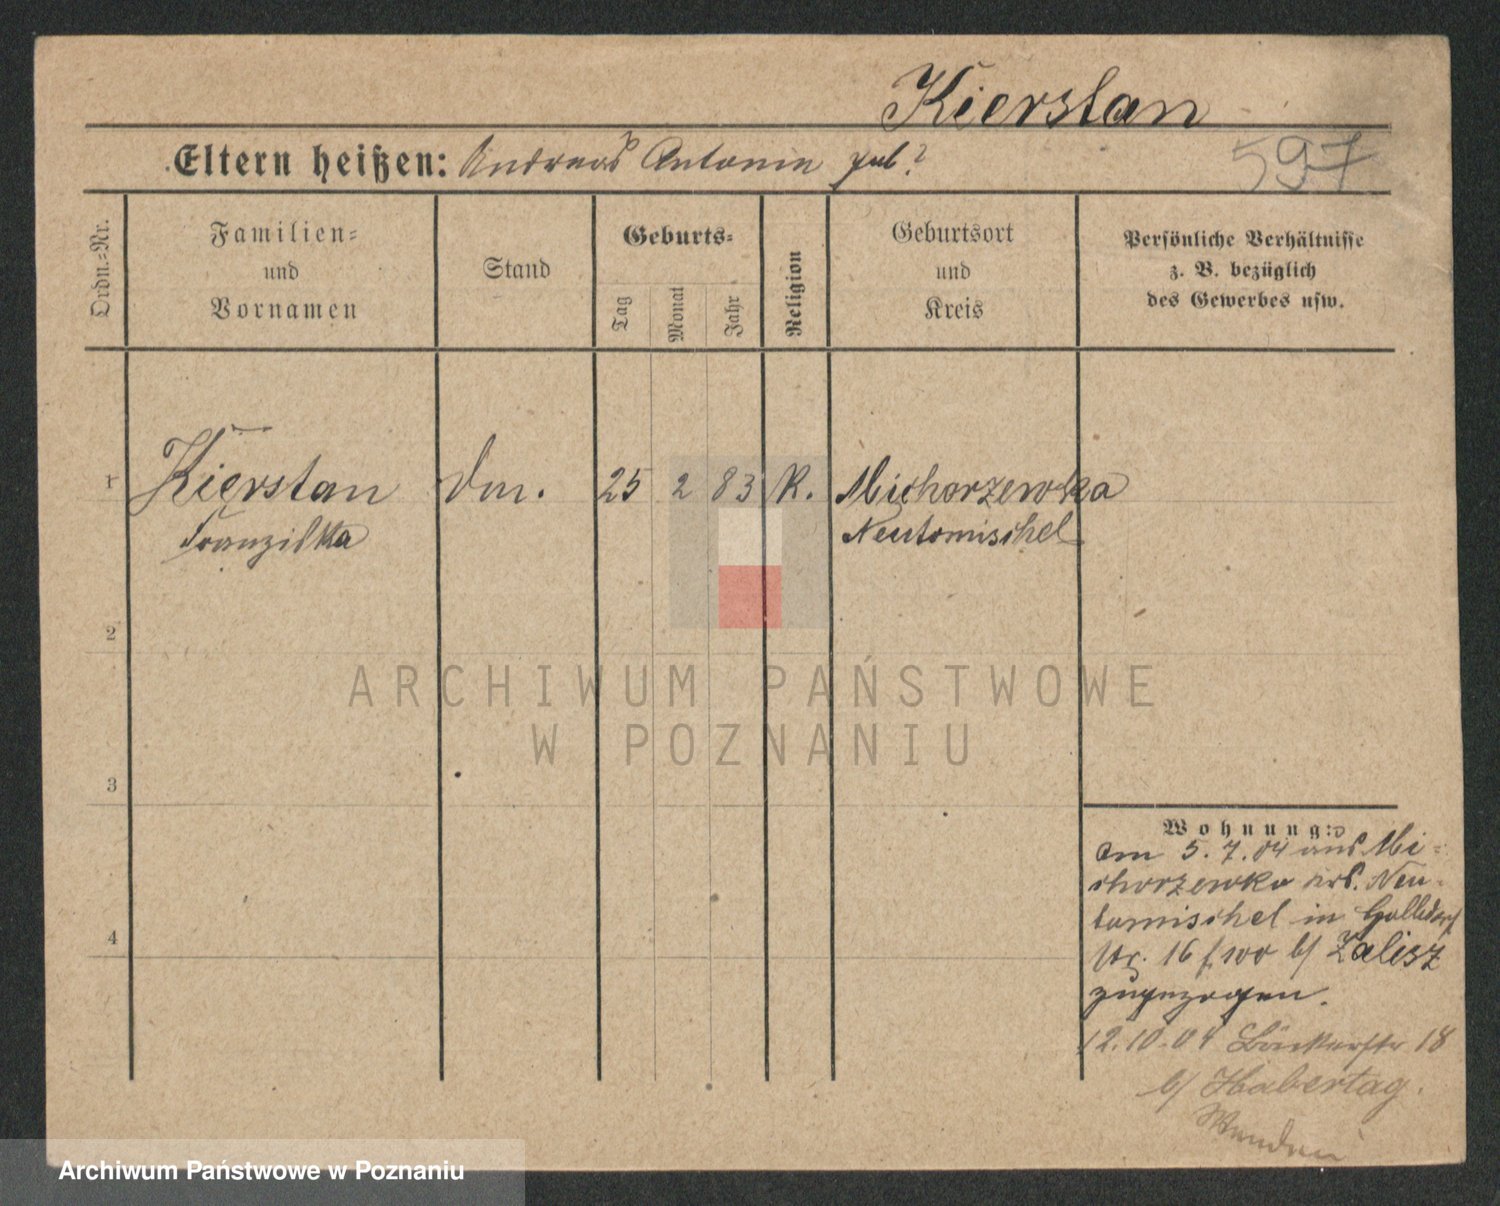 Kierstan
Eltern heißen: Andreas Antonie geb.?
597
Ordn.-Nr.
Familien-
und
Vornamen
Stand
Geburts-
Tag
Monat
Jahr
Religion
Geburtsort
und
Kreis
Persönliche Verhältnisse
z. B. bezüglich
des Gewerbes usw.
1 Kierstan Dm. 25 2 83 K. Michorzewka
Franziska Neutomischel
2
ARCHIWUM PAŃSTWOWE
W POZNANIU
3
Wohnung:
Am 5.7.04 aus Mi-
chorzewko Krs. Neu-
tomischel in
Str. 16 b/ Zalisz
zugezogen.
4
12.10.04 Bäckerstr 18
b/ Habertag.
Wenden
Archiwum Państwowe w Poznaniu